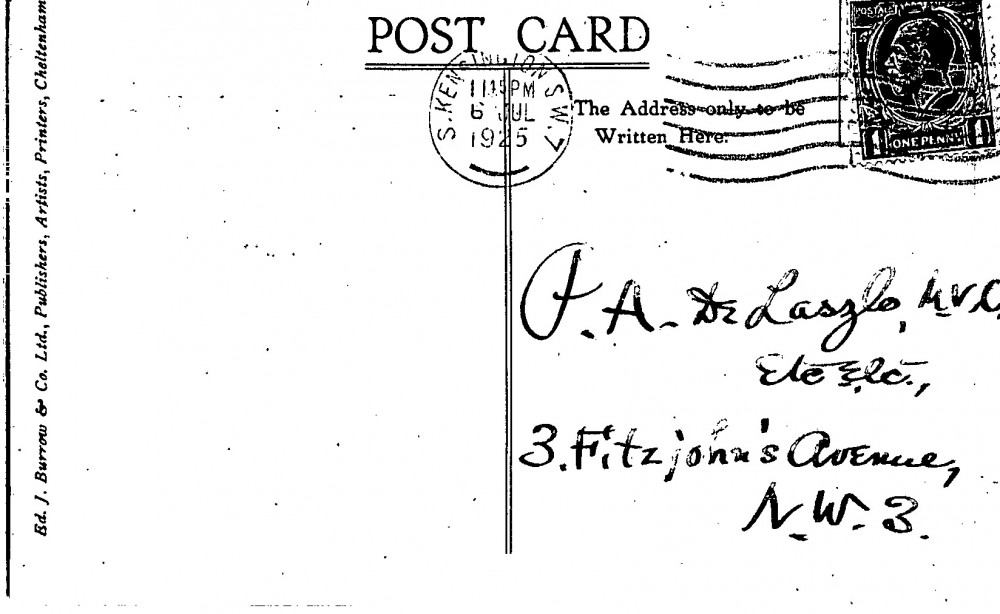 Ed. J. Burrow & Co. Ltd., Publishers, Artists, Printers, Cheltenham
POST CARD
S. KENSINGTON S.W.7
11.15 PM
6 JUL
1925
The Address only to be
Written Here.
POSTAGE
1 ONE PENNY 1
P. A. De Laszlo, M.V.O.
Etc Etc.,
3. Fitzjohn's Avenue,
N.W. 3.